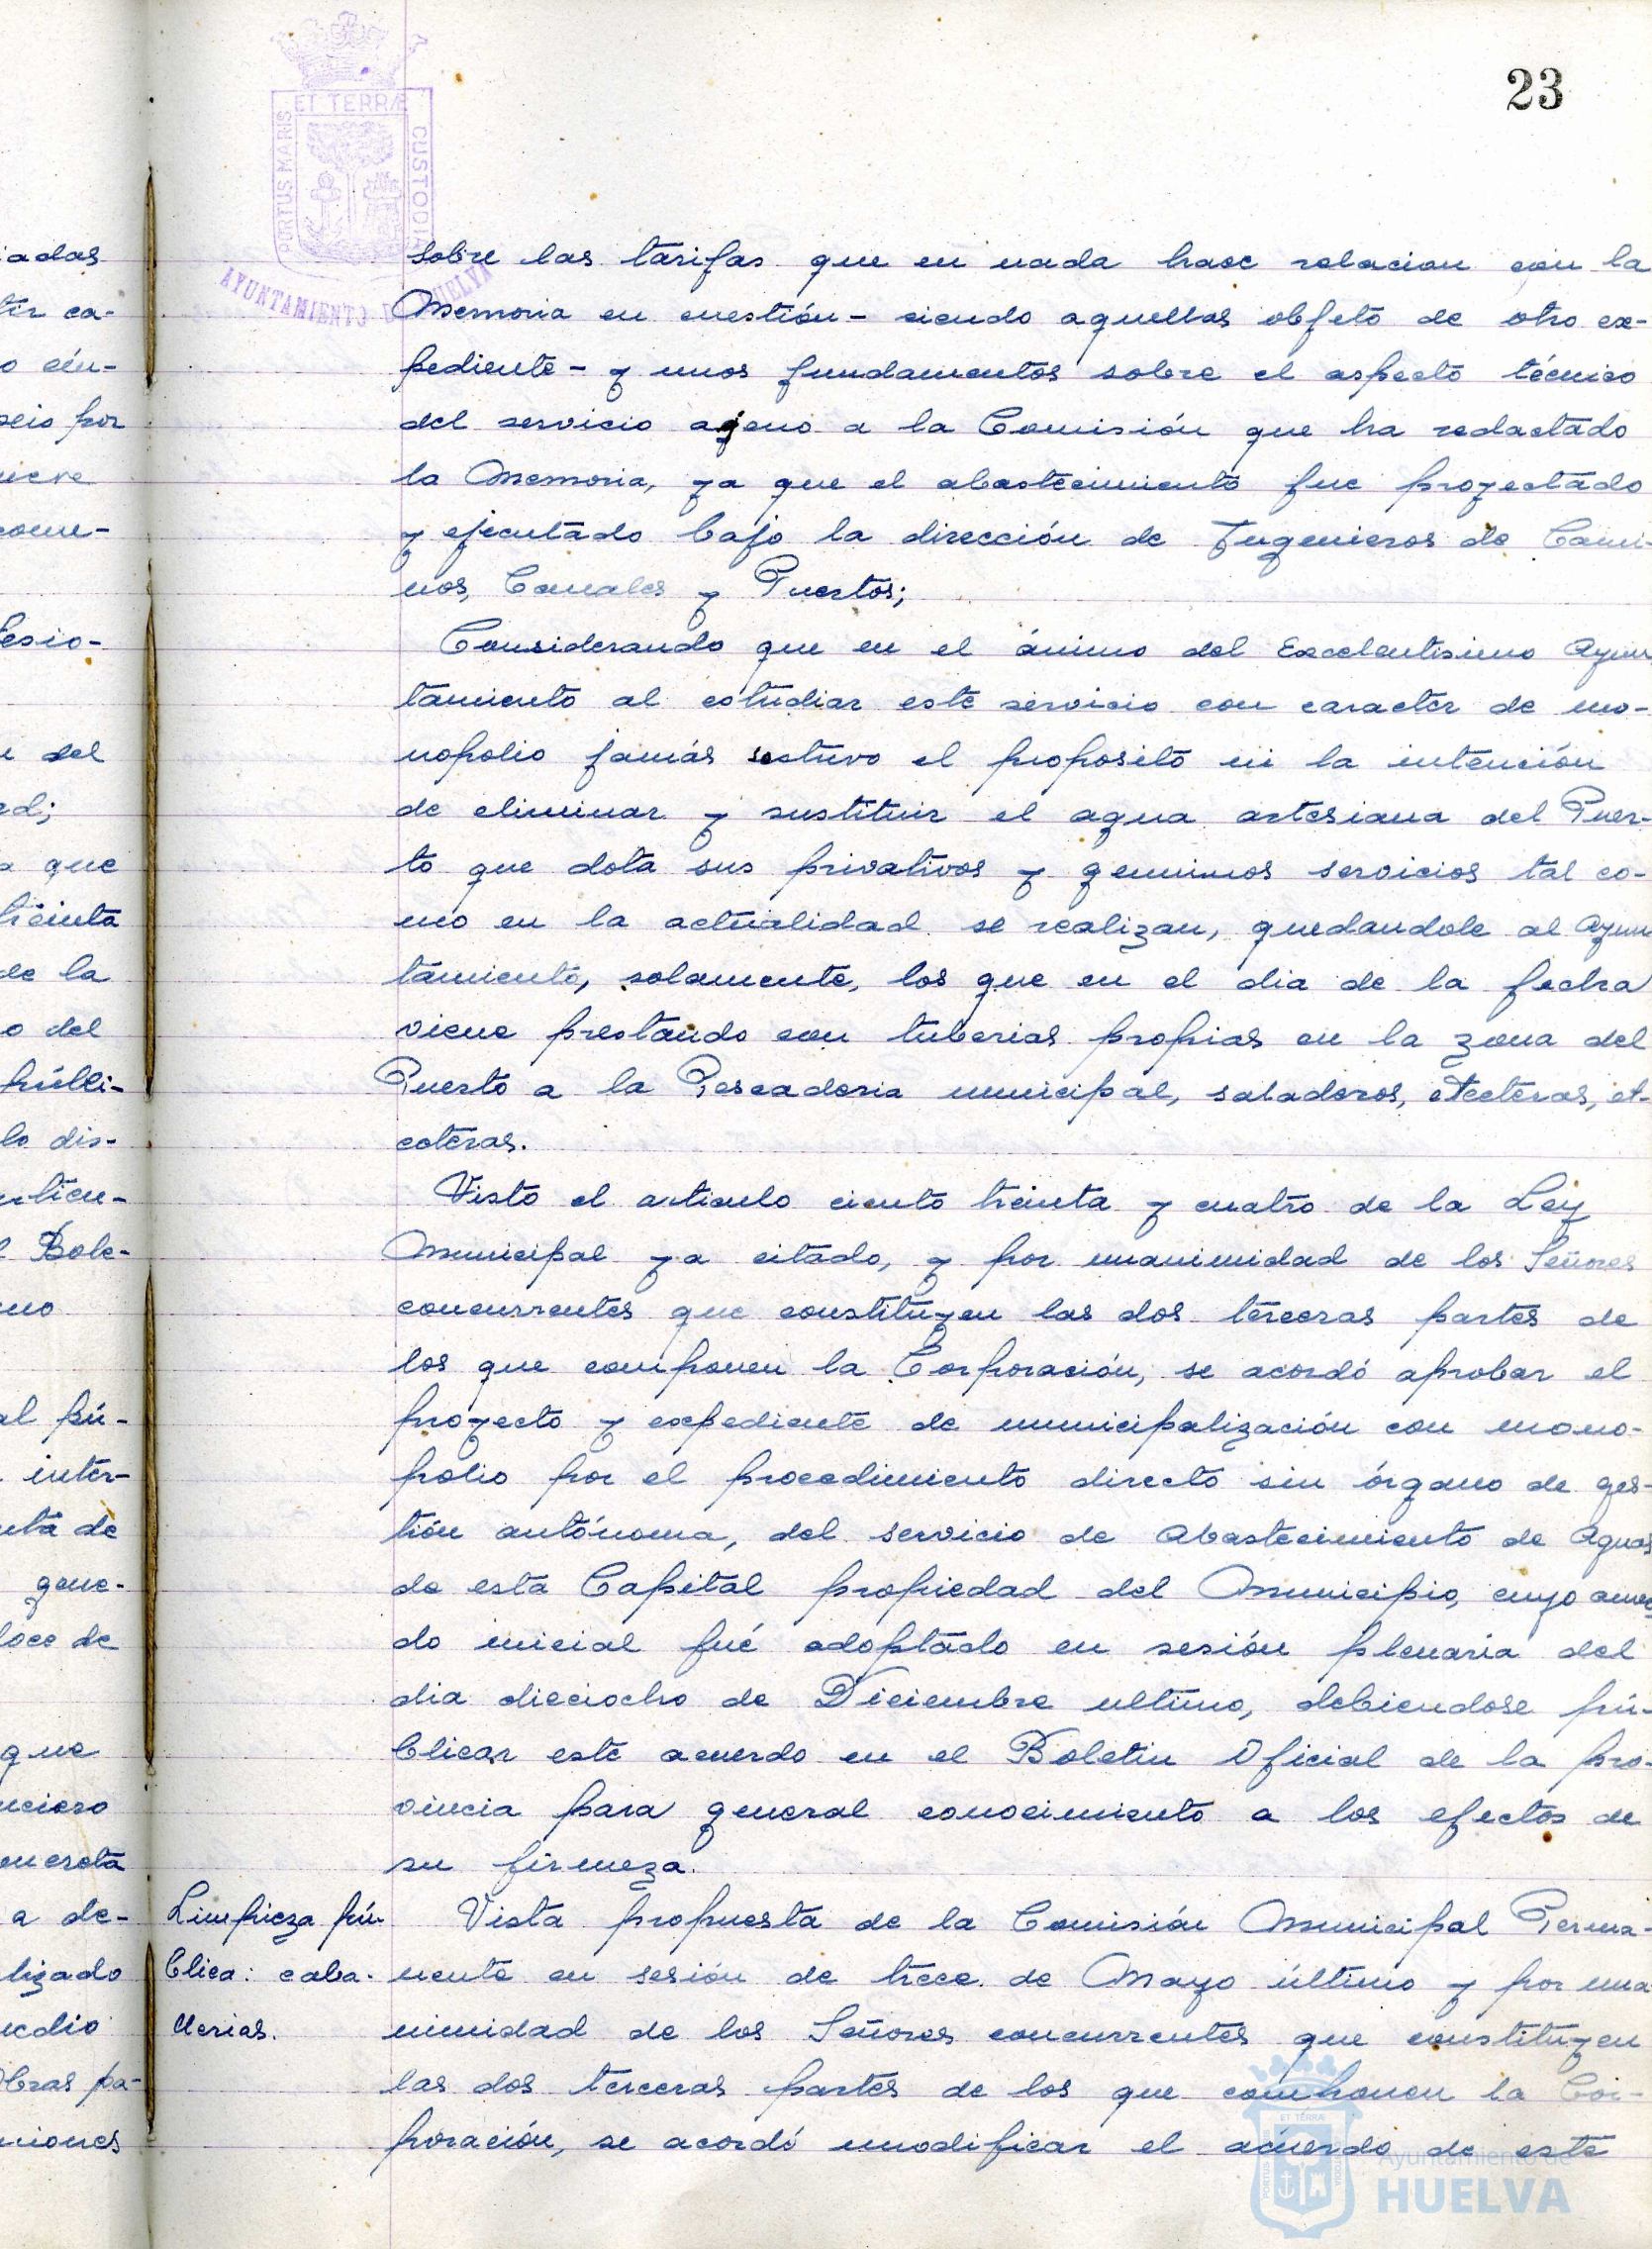 23
ET TERRÆ
PORTUS MARIS
CUSTODIA
AYUNTAMIENTO DE HUELVA
sobre las tarifas que en nada hace relacion con la
Memoria en cuestión - siendo aquellas objeto de otro ex-
pediente - y unos fundamentos sobre el aspecto técnico
del servicio ajeno a la Comisión que ha redactado
la Memoria, ya que el abastecimiento fue proyectado
y ejecutado bajo la dirección de Ingenieros de Cami-
nos, Canales y Puertos;
Considerando que en el ánimo del Excelentisimo Ayun
tamiento al estudiar este servicio con caracter de mo-
nopolio jamás sostuvo el proposito ni la intención
de eliminar y sustituir el agua artesiana del Puer-
to que dota sus privativos y genuinos servicios tal co-
mo en la actualidad se realizan, quedandole al Ayun
tamiento, solamente, los que en el dia de la fecha
viene prestando con tuberias propias en la zona del
Puerto a la Pescaderia municipal, saladeros, etceteras, et-
ceteras.
Visto el articulo ciento treinta y cuatro de la Ley
Municipal ya citado, y por unanimidad de los Señores
concurrentes que constituyen las dos terceras partes de
los que componen la Corporación, se acordó aprobar el
proyecto y expediente de municipalización con mono-
polio por el procedimiento directo sin órgano de ges-
tión autónoma, del servicio de Abastecimiento de Aguas
de esta Capital propiedad del Municipio, cuyo acuer
do inicial fué adoptado en sesión plenaria del
dia dieciocho de Diciembre ultimo, debiendose pú-
blicar este acuerdo en el Boletin Oficial de la pro-
vincia para general conocimiento a los efectos de
su firmeza.
Limpieza pú-
blica: caba-
llerias.
Vista propuesta de la Comisión Municipal Perma-
nente en sesión de trece de Mayo último y por una
nimidad de los Señores concurrentes que constituyen
las dos terceras partes de los que componen la Cor-
poración, se acordó modificar el acuerdo de este
Ayuntamiento de
HUELVA